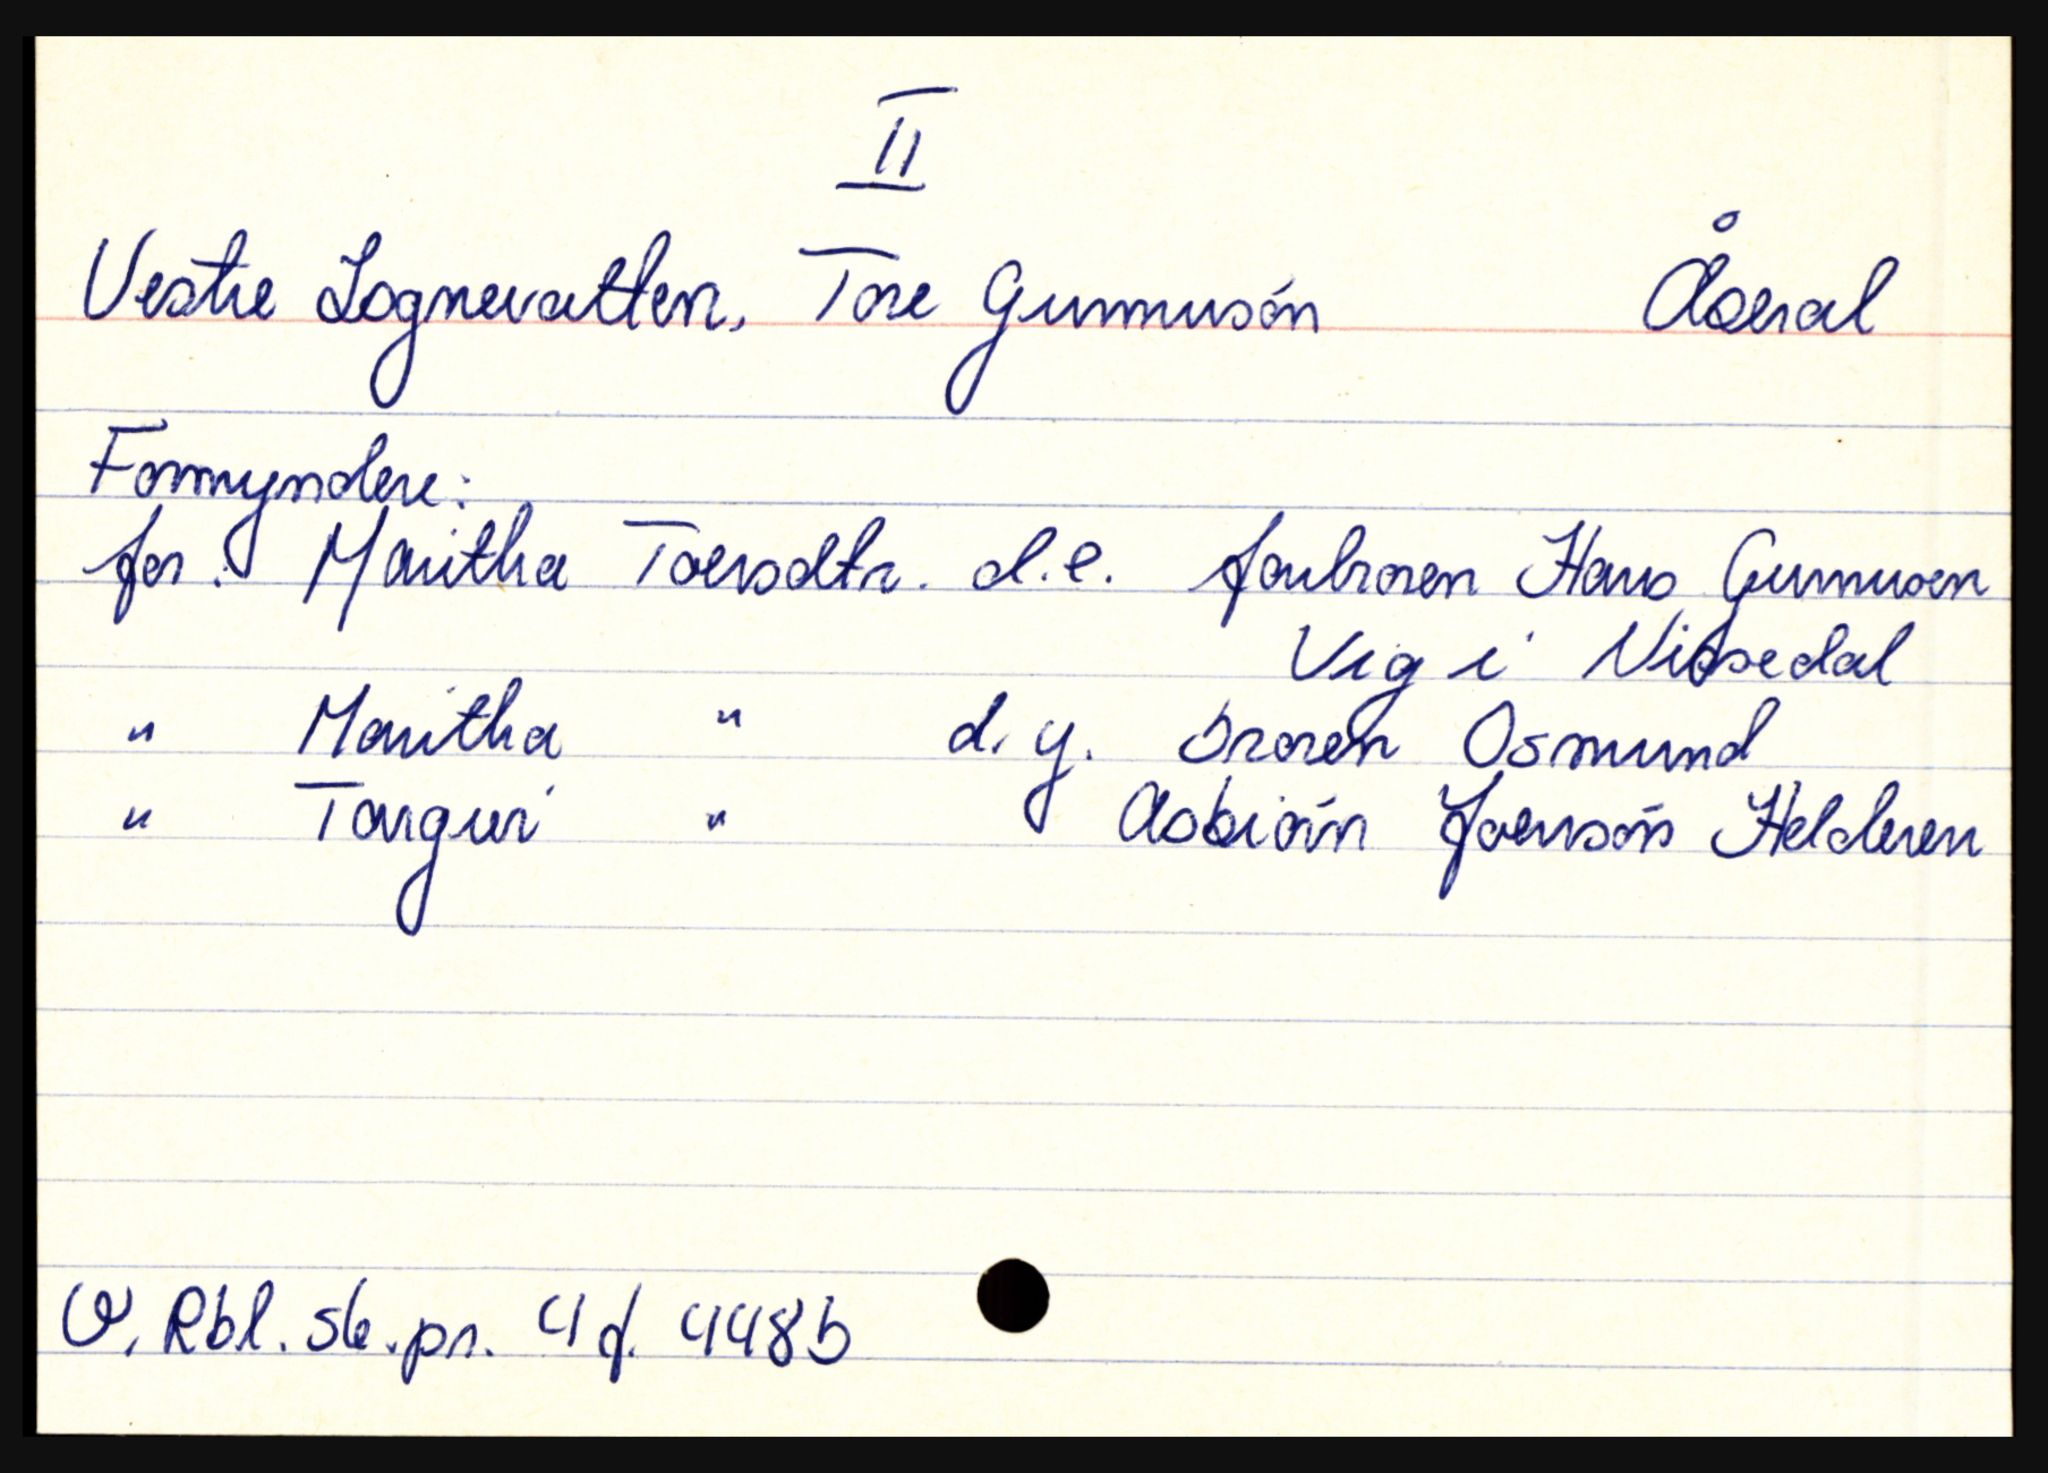 II
Vestre Lognevatten, Tore Gunnusón Åseral
Formyndere:
for: Maritha Toersdtr. d.e. farbroren Hans Gunnusen
Vig i Vidsedal
" Maritha " d.y. broren Osmund
" Torguri " Asbiórn Joensón Helderen
V. Rbl. sk.pr. 4 f. 448b